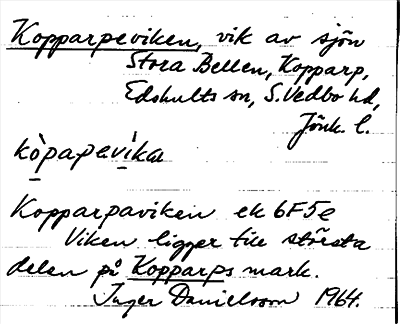 Kopparpeviken, vik av sjön
Stora Bellen, Kopparp,
Edshults sn, S. Vedbo hd,
Jönk. l.
kòpapevìka
Kopparpaviken ek 6F5e
Viken ligger till största
delen på Kopparps mark.
Inger Danielsson 1964.